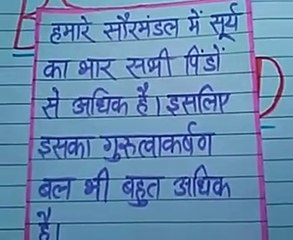 हमारे सौरमंडल में सूर्य
का भार सभी पिंडों
से अधिक है। इसलिए
इसका गुरुत्वाकर्षण
बल भी बहुत अधिक
है।